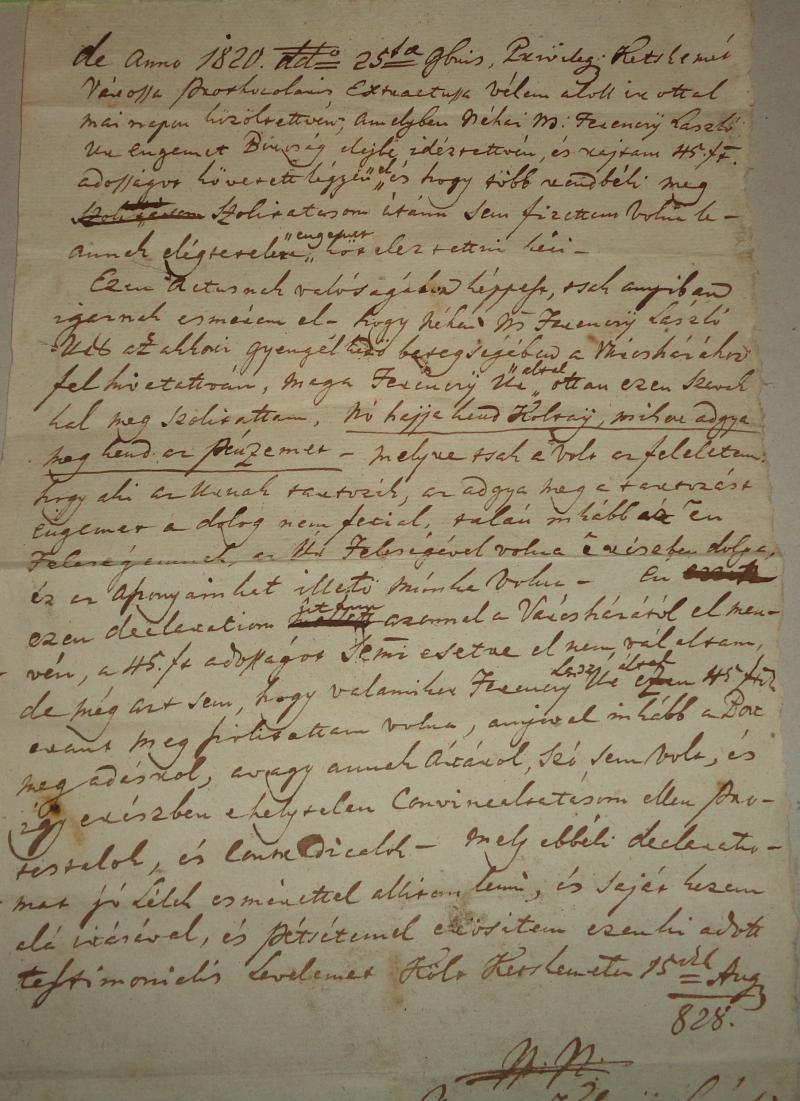 de Anno 1820. ddo 25ta 9bris, Privileg: Ketskemét
Várossa Prothocolaris Extractussa vélem alól irottal
mai napon közöltettvén, amelyben Néhai N: Ferenczy László
Ur engemet Biróság elejbe idéztettvén, és rajtam 45. ft.
adósságot követett légyen el és hogy több rendbéli meg
Szolitatásom utánn sem fizettem volna le-
annak elégtetelére engemet köteleztettni kéri -
Ezen Actusnak valóságához képpest, tsak anyiban
igaznak esmérem el - hogy Néhai N Ferenczy László
Ur az akkori gyengélkedő betegségében a Városházához
fel hivatattván, maga Ferenczy Ur által ottan ezen szavak
kal meg szolittattam. Nó hajja kend Kolray, mikor adgya
meg kend az Pénzemet - melyre tsak a volt az feleletem:
hogy aki az Urnak tartozik, az adgya meg a tartozást
engemet a dolog nem feciál, talán inkább az én
Feleségemnek, az Ur Feleségével volna e részben dolga,
és az Aponyáinket illető munka volna - én
ezen declaratiom uttánn azonnal a Városházától el men-
vén, a 45. ft adósságot Semmi esetre el nem vállaltam,
de még azt sem, hogy valamikor Ferenczy László Ur által 45 ftok
eránt meg szolittattam volna, anyival inkább a Bor
meg adásról, avagy annak Áráról, szó sem volt, és
így erészben ehelytelen Convincaltatásom ellen Pro-
testalok, és Contradicalok - mely ebbéli declaratio-
mat jó Lélek esmérettel allitom lenni, és saját kezem
alá irásával, és Pétsétemel erősitem ezen ki adott
testimonialis Levelemet Költ Ketskeméten 15dik Aug
828.
N. N.